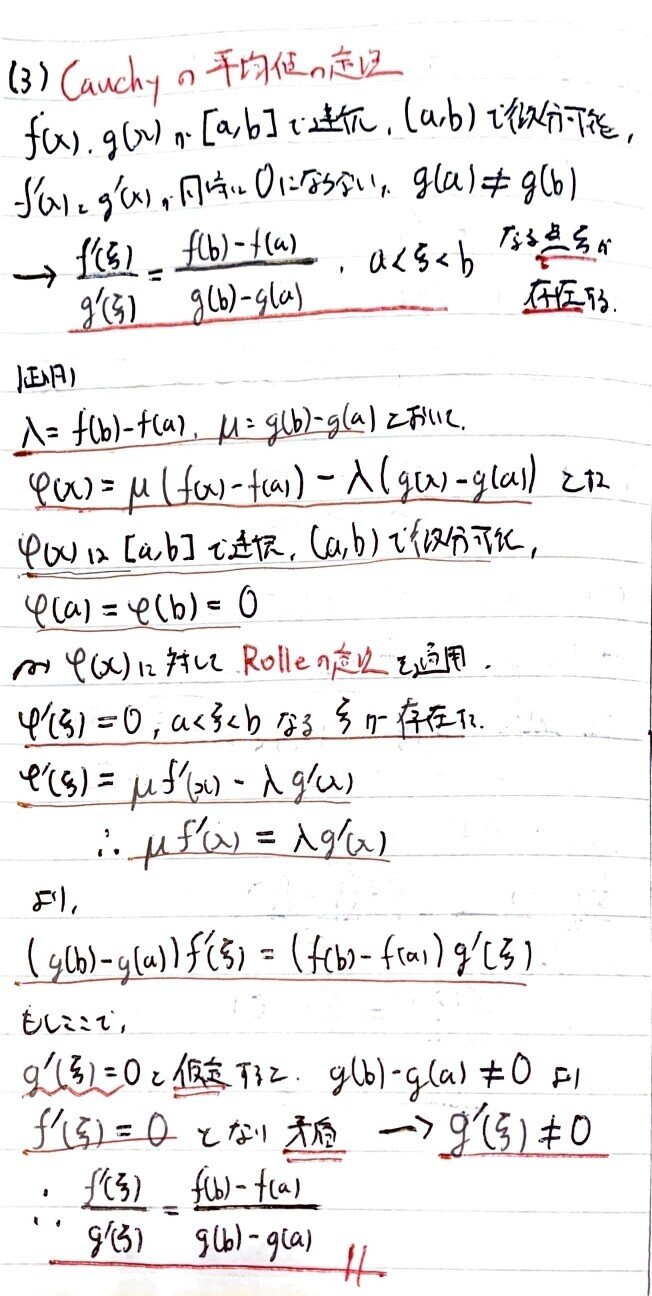 (3) Cauchy の 平均値の定理
f(x), g(x) が [a,b] で連続, (a,b) で微分可能,
f'(x) と g'(x) が同時に 0 にならない, g(a) ≠ g(b)
→ f'(ξ)/g'(ξ) = (f(b)-f(a))/(g(b)-g(a)) , a<ξ<b なる点 ξ が
存在する.
証明)
λ = f(b)-f(a), μ = g(b)-g(a) とおいて,
φ(x) = μ(f(x)-f(a)) - λ(g(x)-g(a)) とすれ
φ(x) は [a,b] で連続, (a,b) で微分可能,
φ(a) = φ(b) = 0
φ(x) に対して Rolle の定理 を適用.
φ'(ξ) = 0, a<ξ<b なる ξ が 存在する.
φ'(ξ) = μf'(x) - λg'(x)
∴ μf'(x) = λg'(x)
より,
(g(b)-g(a))f'(ξ) = (f(b)-f(a))g'(ξ)
もしここで,
g'(ξ)=0 と仮定すると. g(b)-g(a) ≠ 0 より
f'(ξ) = 0 となり 矛盾 → g'(ξ) ≠ 0
∴ f'(ξ)/g'(ξ) = (f(b)-f(a))/(g(b)-g(a)) //